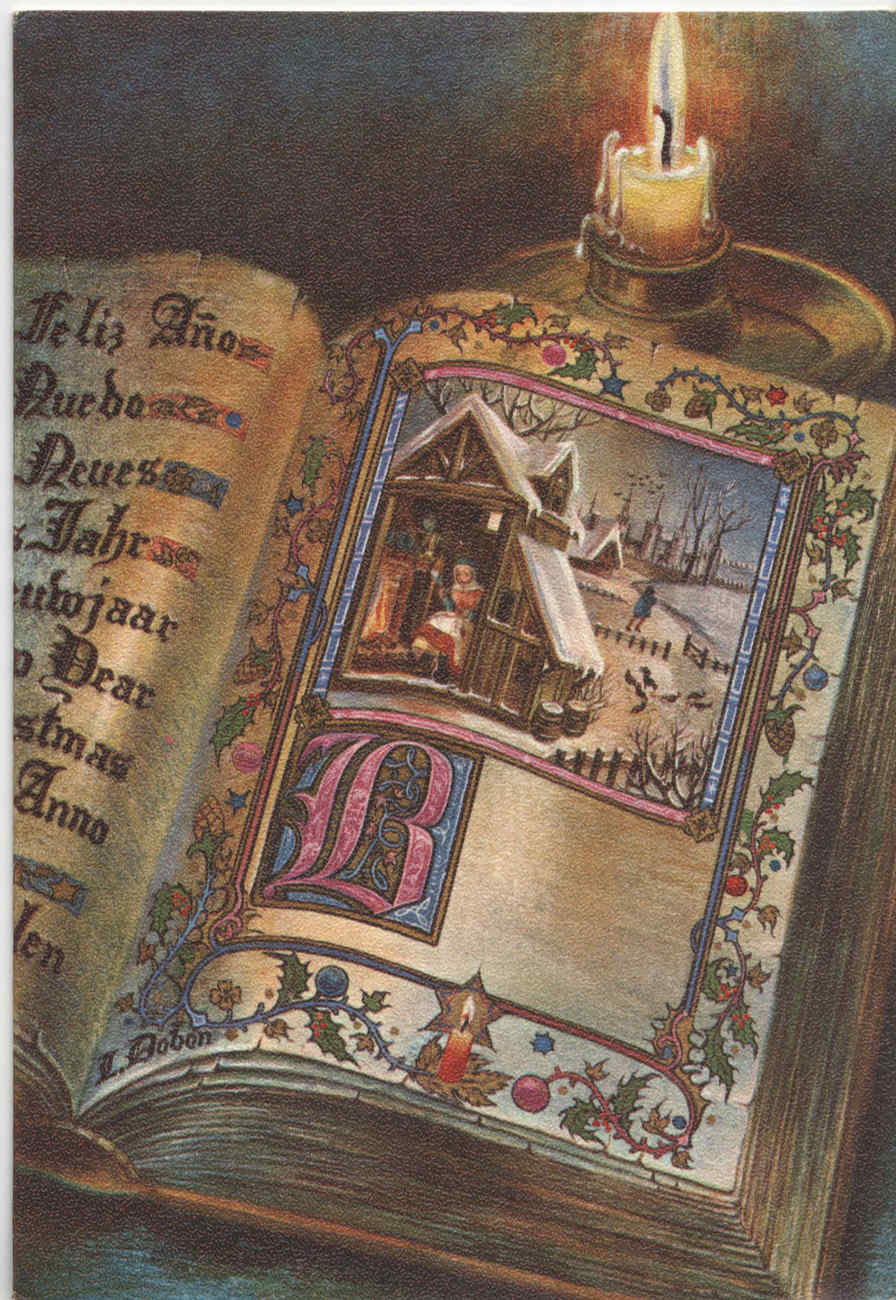 Feliz Año
Nuevo
Neues
s Jahr
euwjaar
w Year
stmas
Anno
len
B
L. Dobon